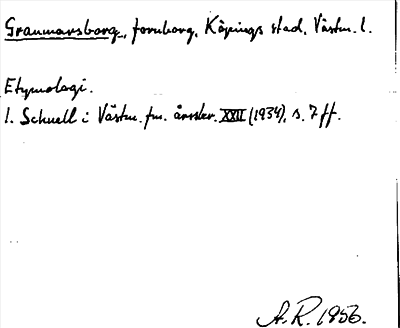 Granmarsborg, fornborg, Köpings stad, Västm. l.
Etymologi.
I. Schnell i Västm. fm. årsskr. XXII (1934), s. 7 ff.
A.R. 1956.